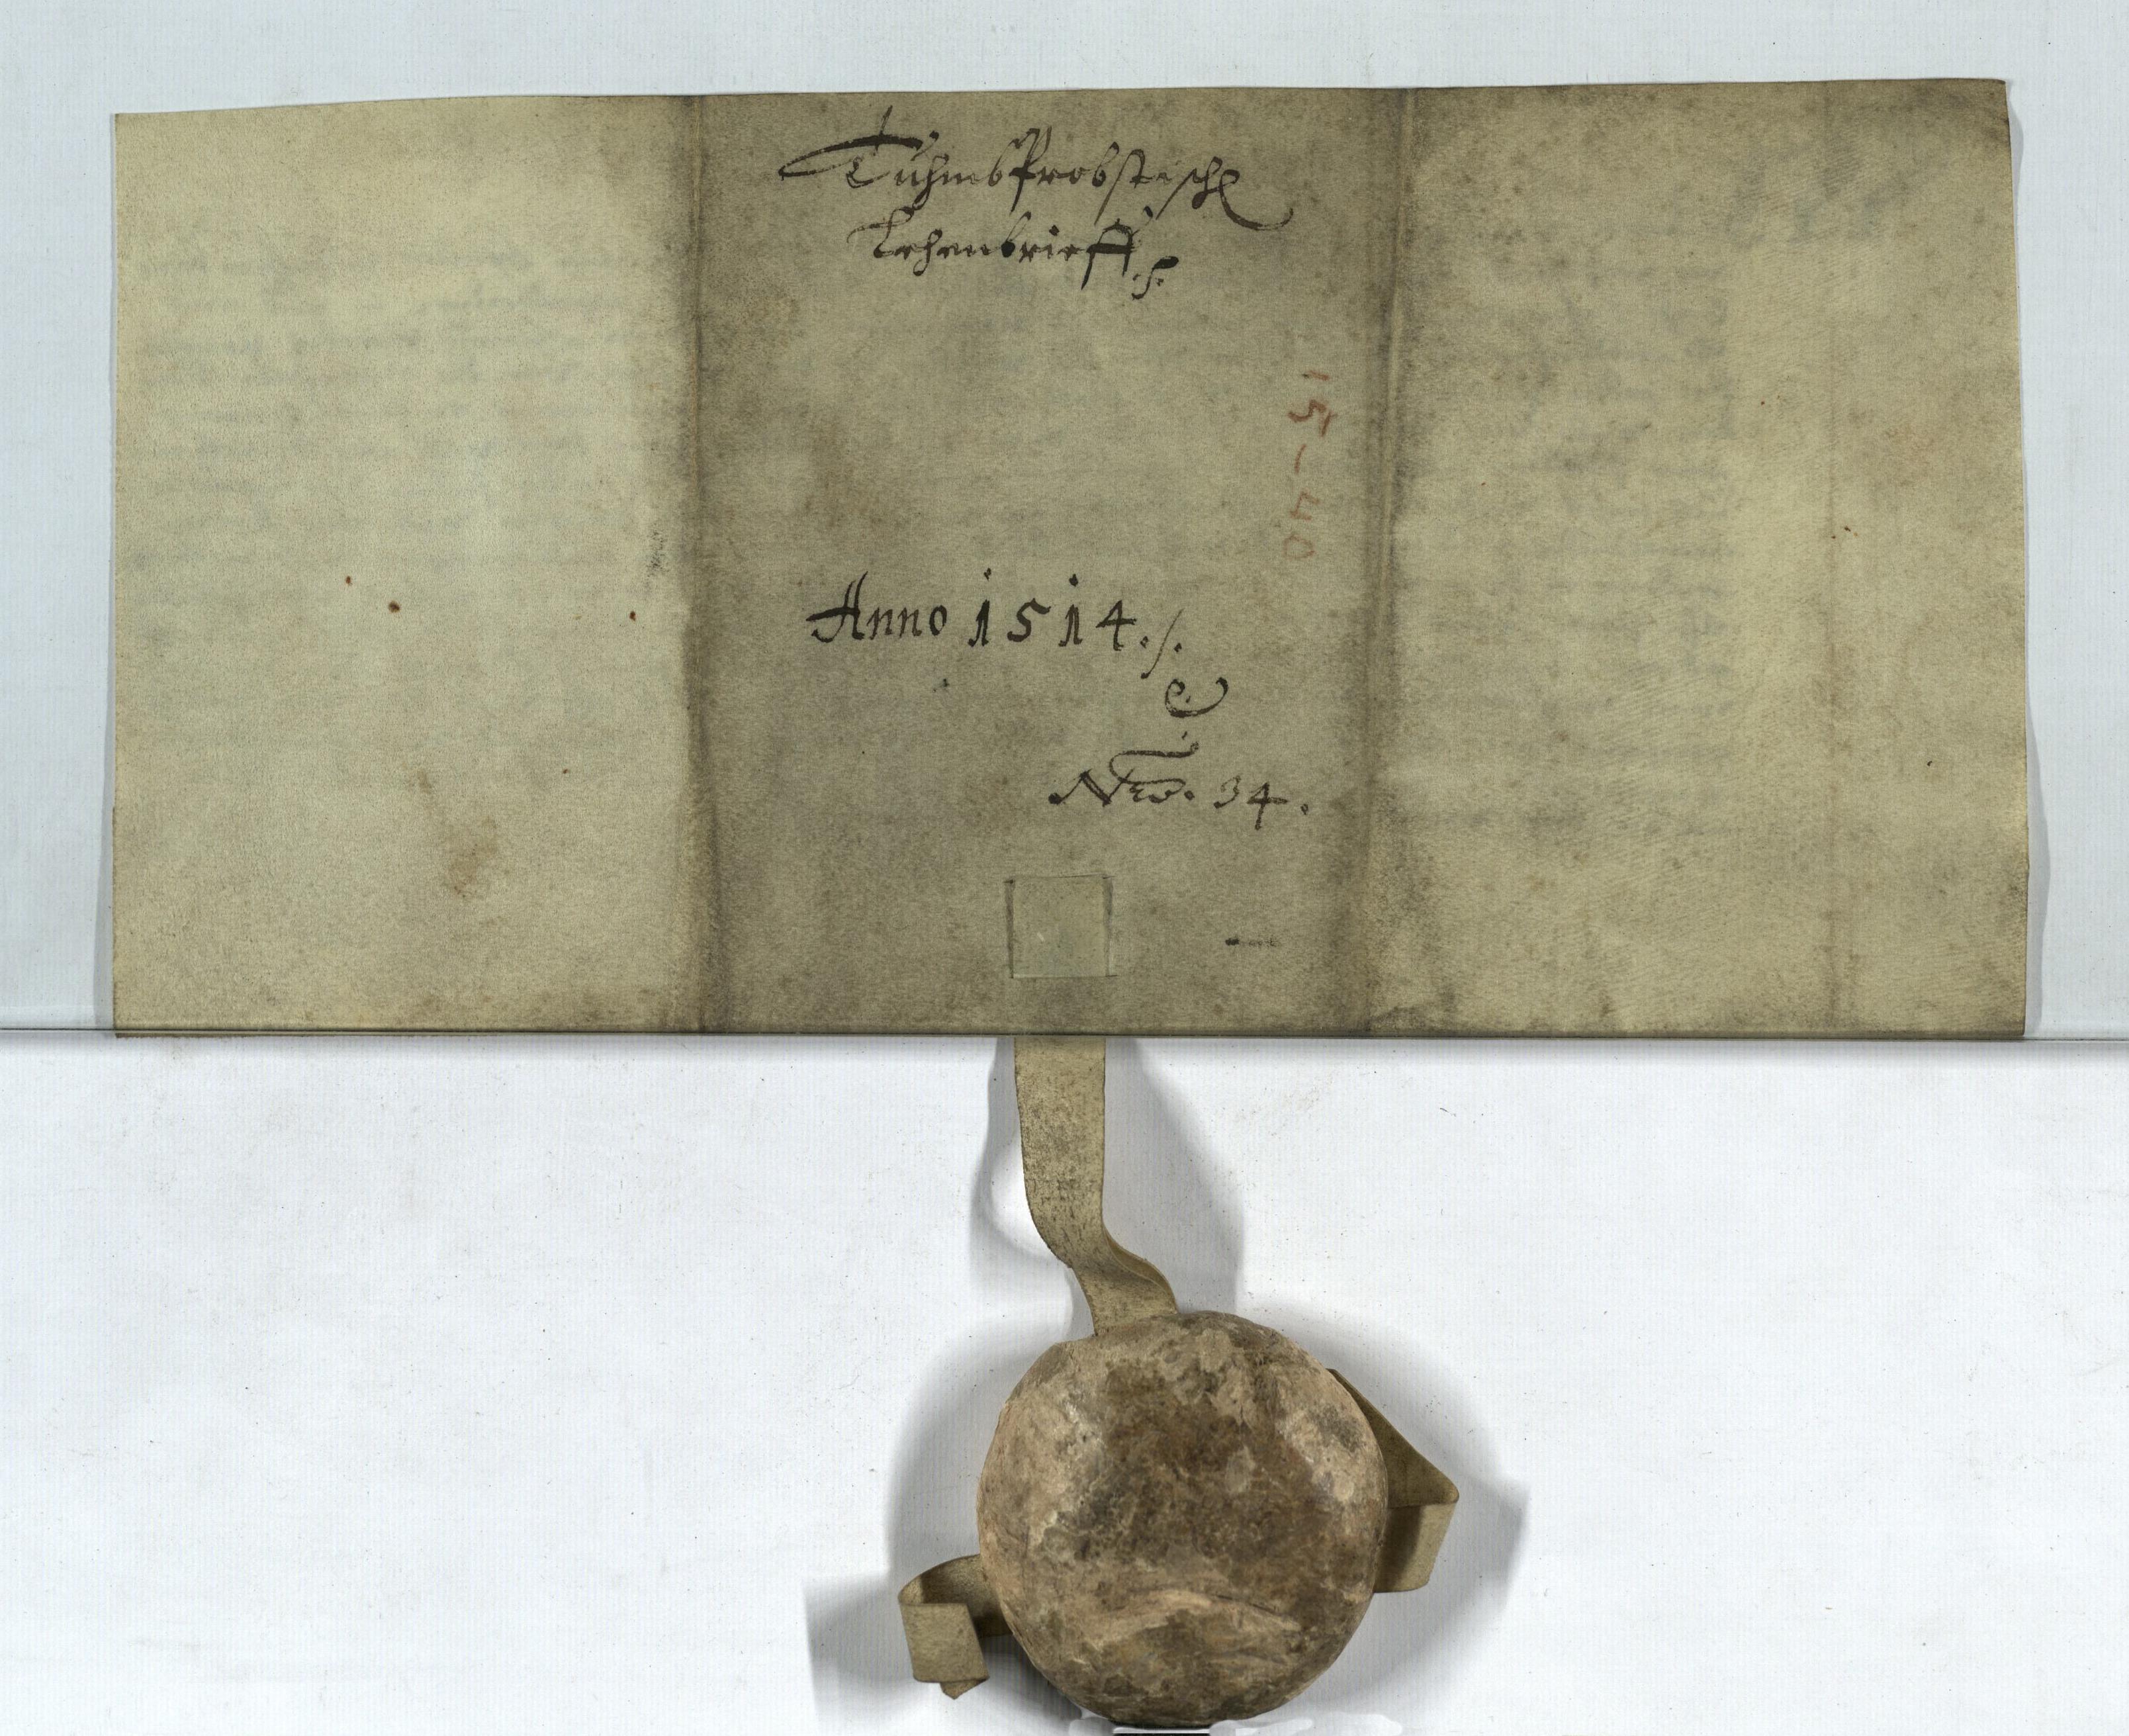 ThumbsProbstisch
Lehenbrieff ./.
15-40
Anno 1514 ./.
Nro. 34.